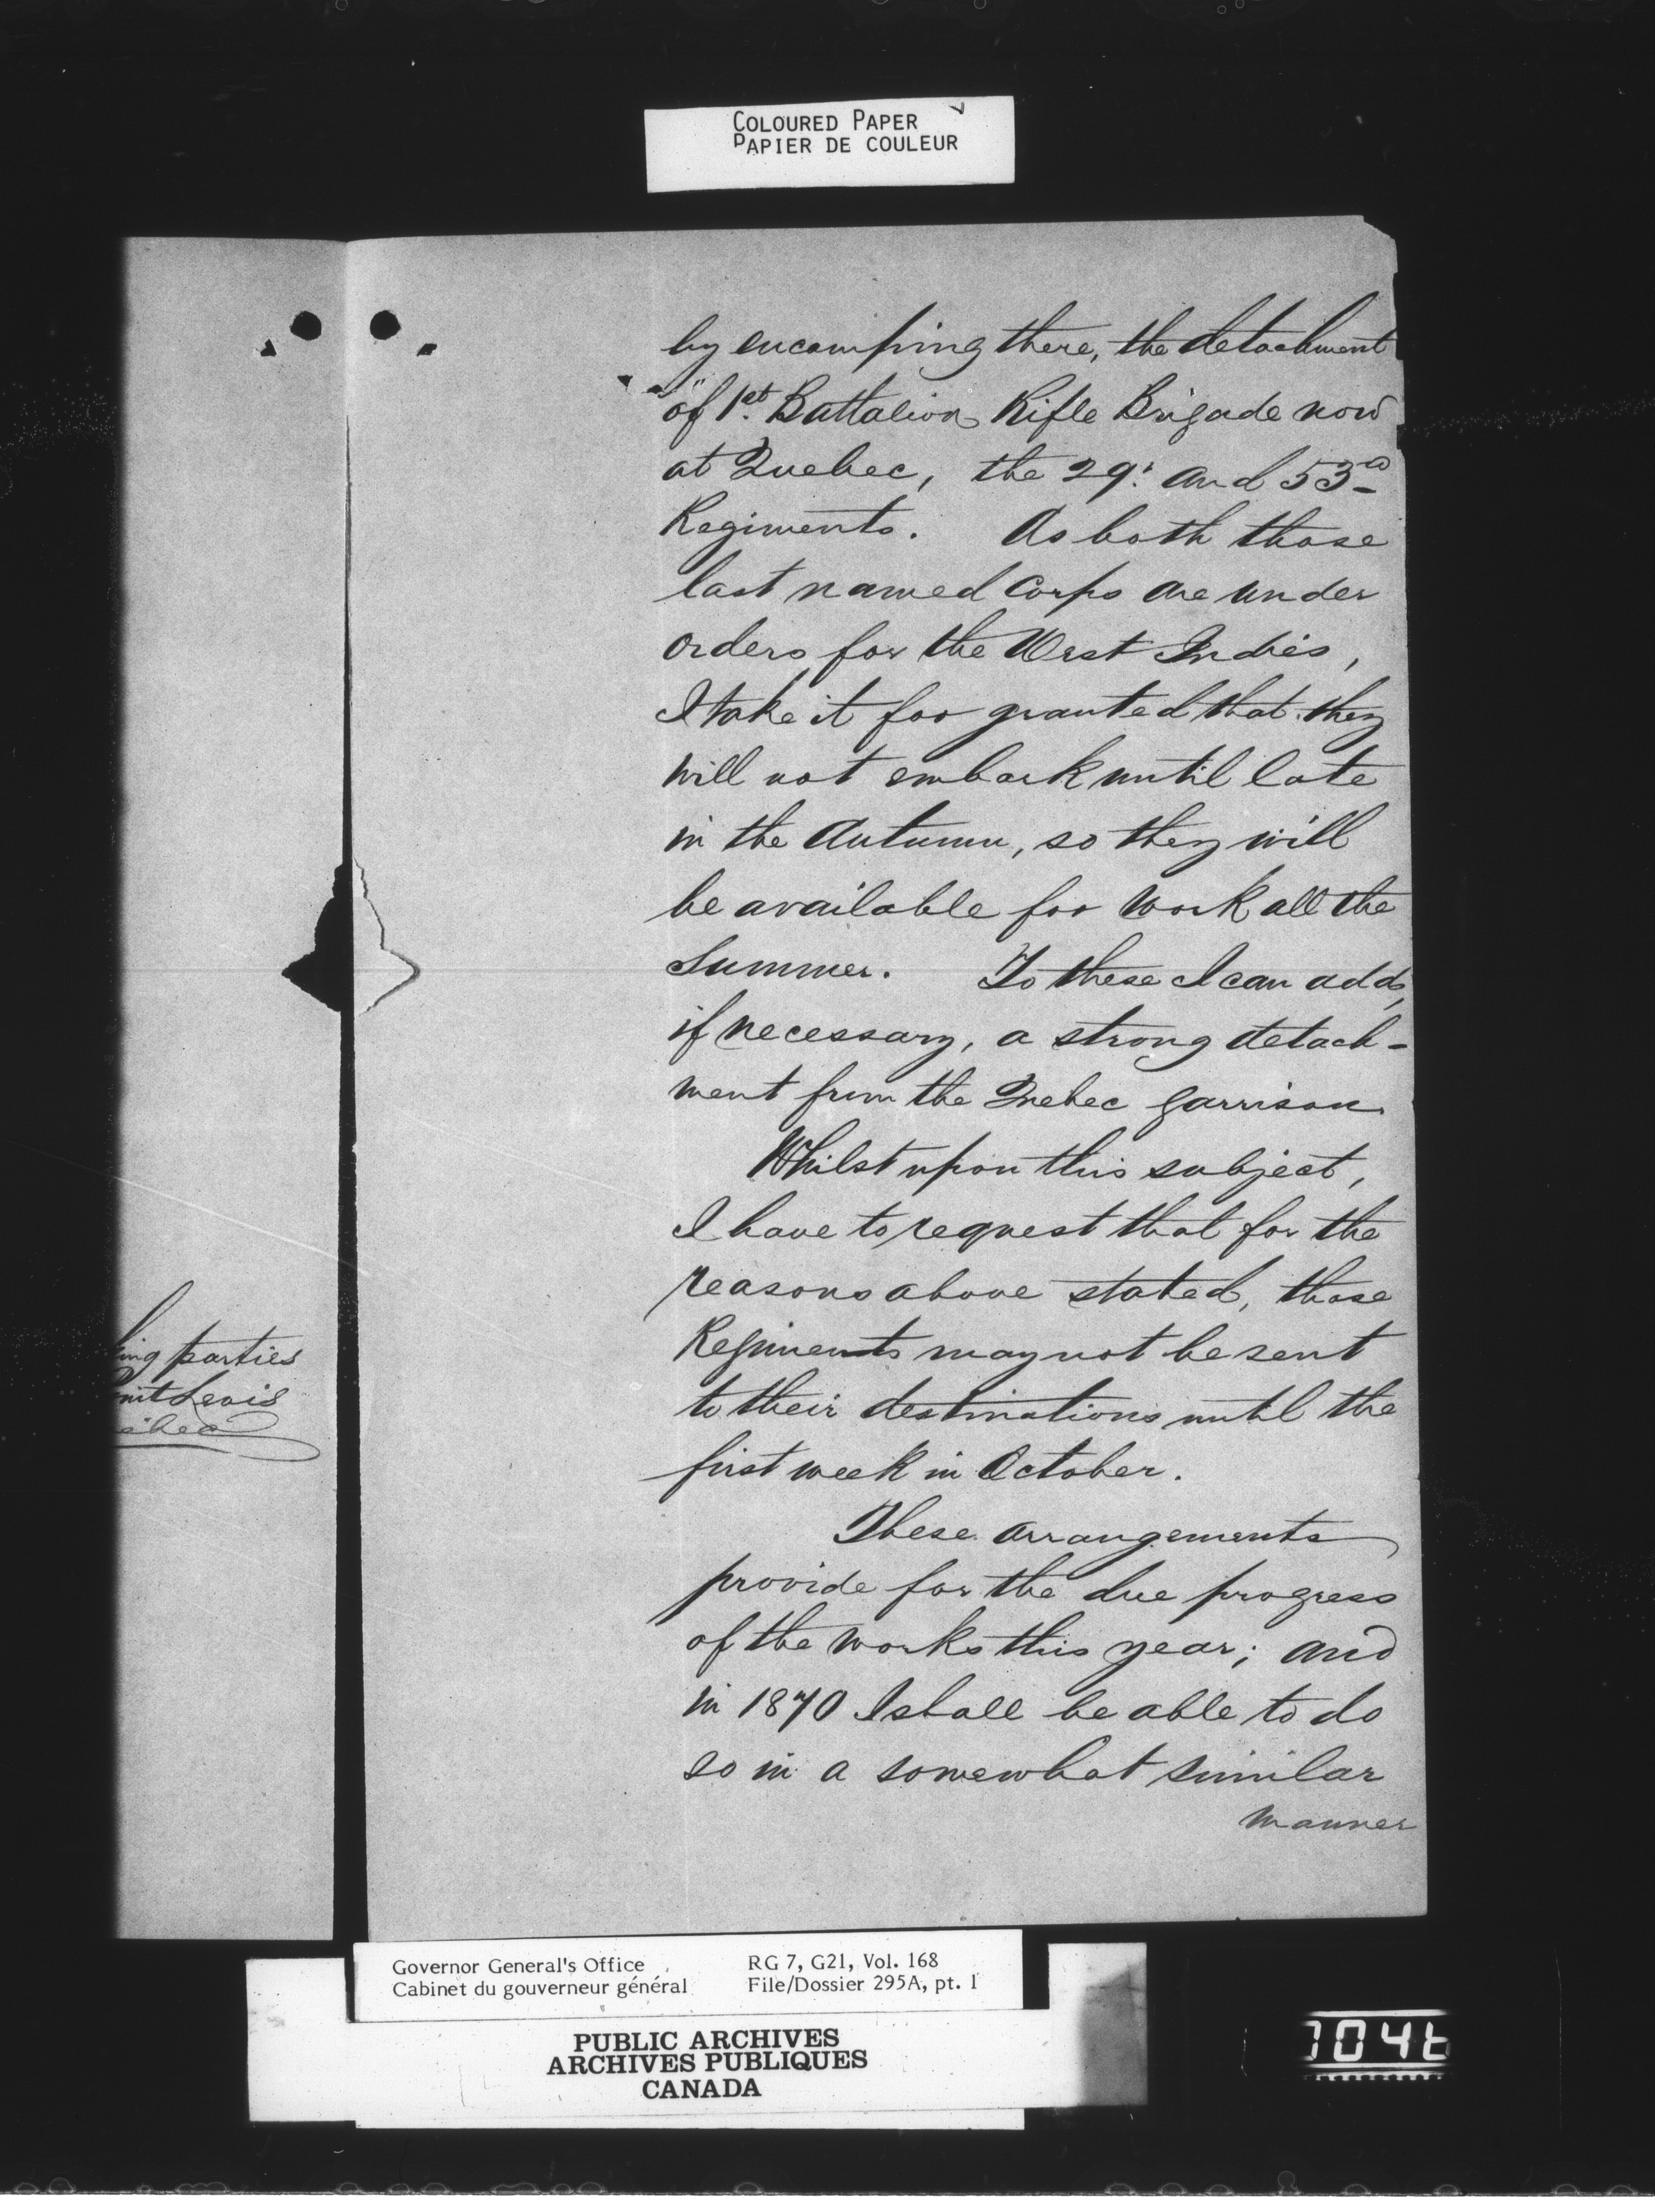 COLOURED PAPER
PAPIER DE COULEUR
by encamping there, the detachment
of 1st. Battalion Rifle Brigade now
at Quebec, the 29: and 53d
Regiments. As both those
last named Corps are under
orders for the West Indies,
I take it for granted that they
will not embark until late
in the Autumn, so they will
be available for work all the
Summer. To these I can add,
if necessary, a strong detach-
ment from the Quebec garrison.
Whilst upon this subject,
I have to request that for the
reasons above stated, those
Regiments may not be sent
to their destinations until the
first week in October.
These arrangements
provide for the due progress
of the works this year; and
in 1870 I shall be able to do
so in a somewhat similar
manner
ing parties
Levis
Governor General's Office
Cabinet du gouverneur général
RG 7, G21, Vol. 168
File/Dossier 295A, pt. 1
PUBLIC ARCHIVES
ARCHIVES PUBLIQUES
CANADA